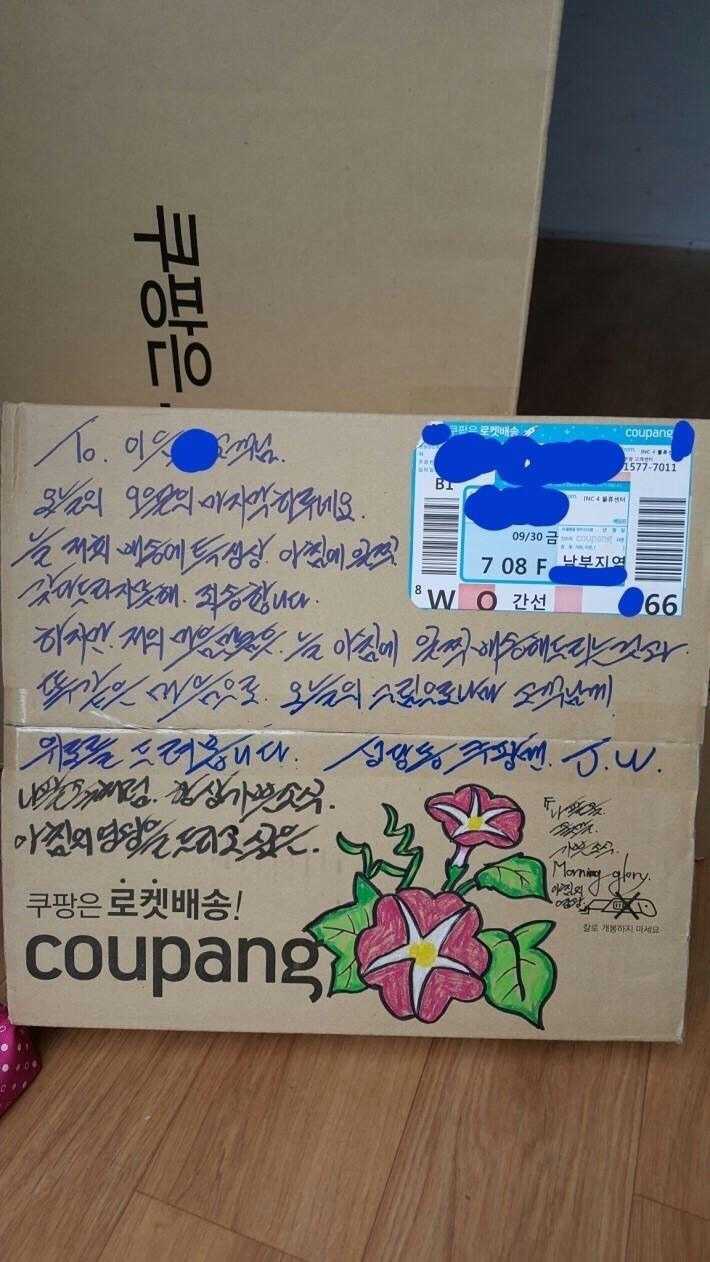 쿠팡은
To. 이 고객님.
오늘이 9월의 마지막 하루네요.
늘 저희 배송에 아침에 일찍
못해. 죄송합니다.
하지만. 저의 마음만큼은. 늘 아침에 일찍 배송해드리는것과
똑같은 마음으로. 오늘의 그림으로나마 고객님께
위로를 드려봅니다. 쿠팡맨. J.W.
나팔소리처럼. 항상 기쁜소식.
아침의 영광을 드리고 싶은.
쿠팡은 로켓배송
coupang
1577-7011
INC 4 물류센터
B1
09/30 금
coupang
7 08 F
남부지역
8
W
O
간선
66
나팔꽃.
기쁜소식.
Morning glory.
아침의
영광
칼로 개봉하지 마세요
쿠팡은 로켓배송!
coupang